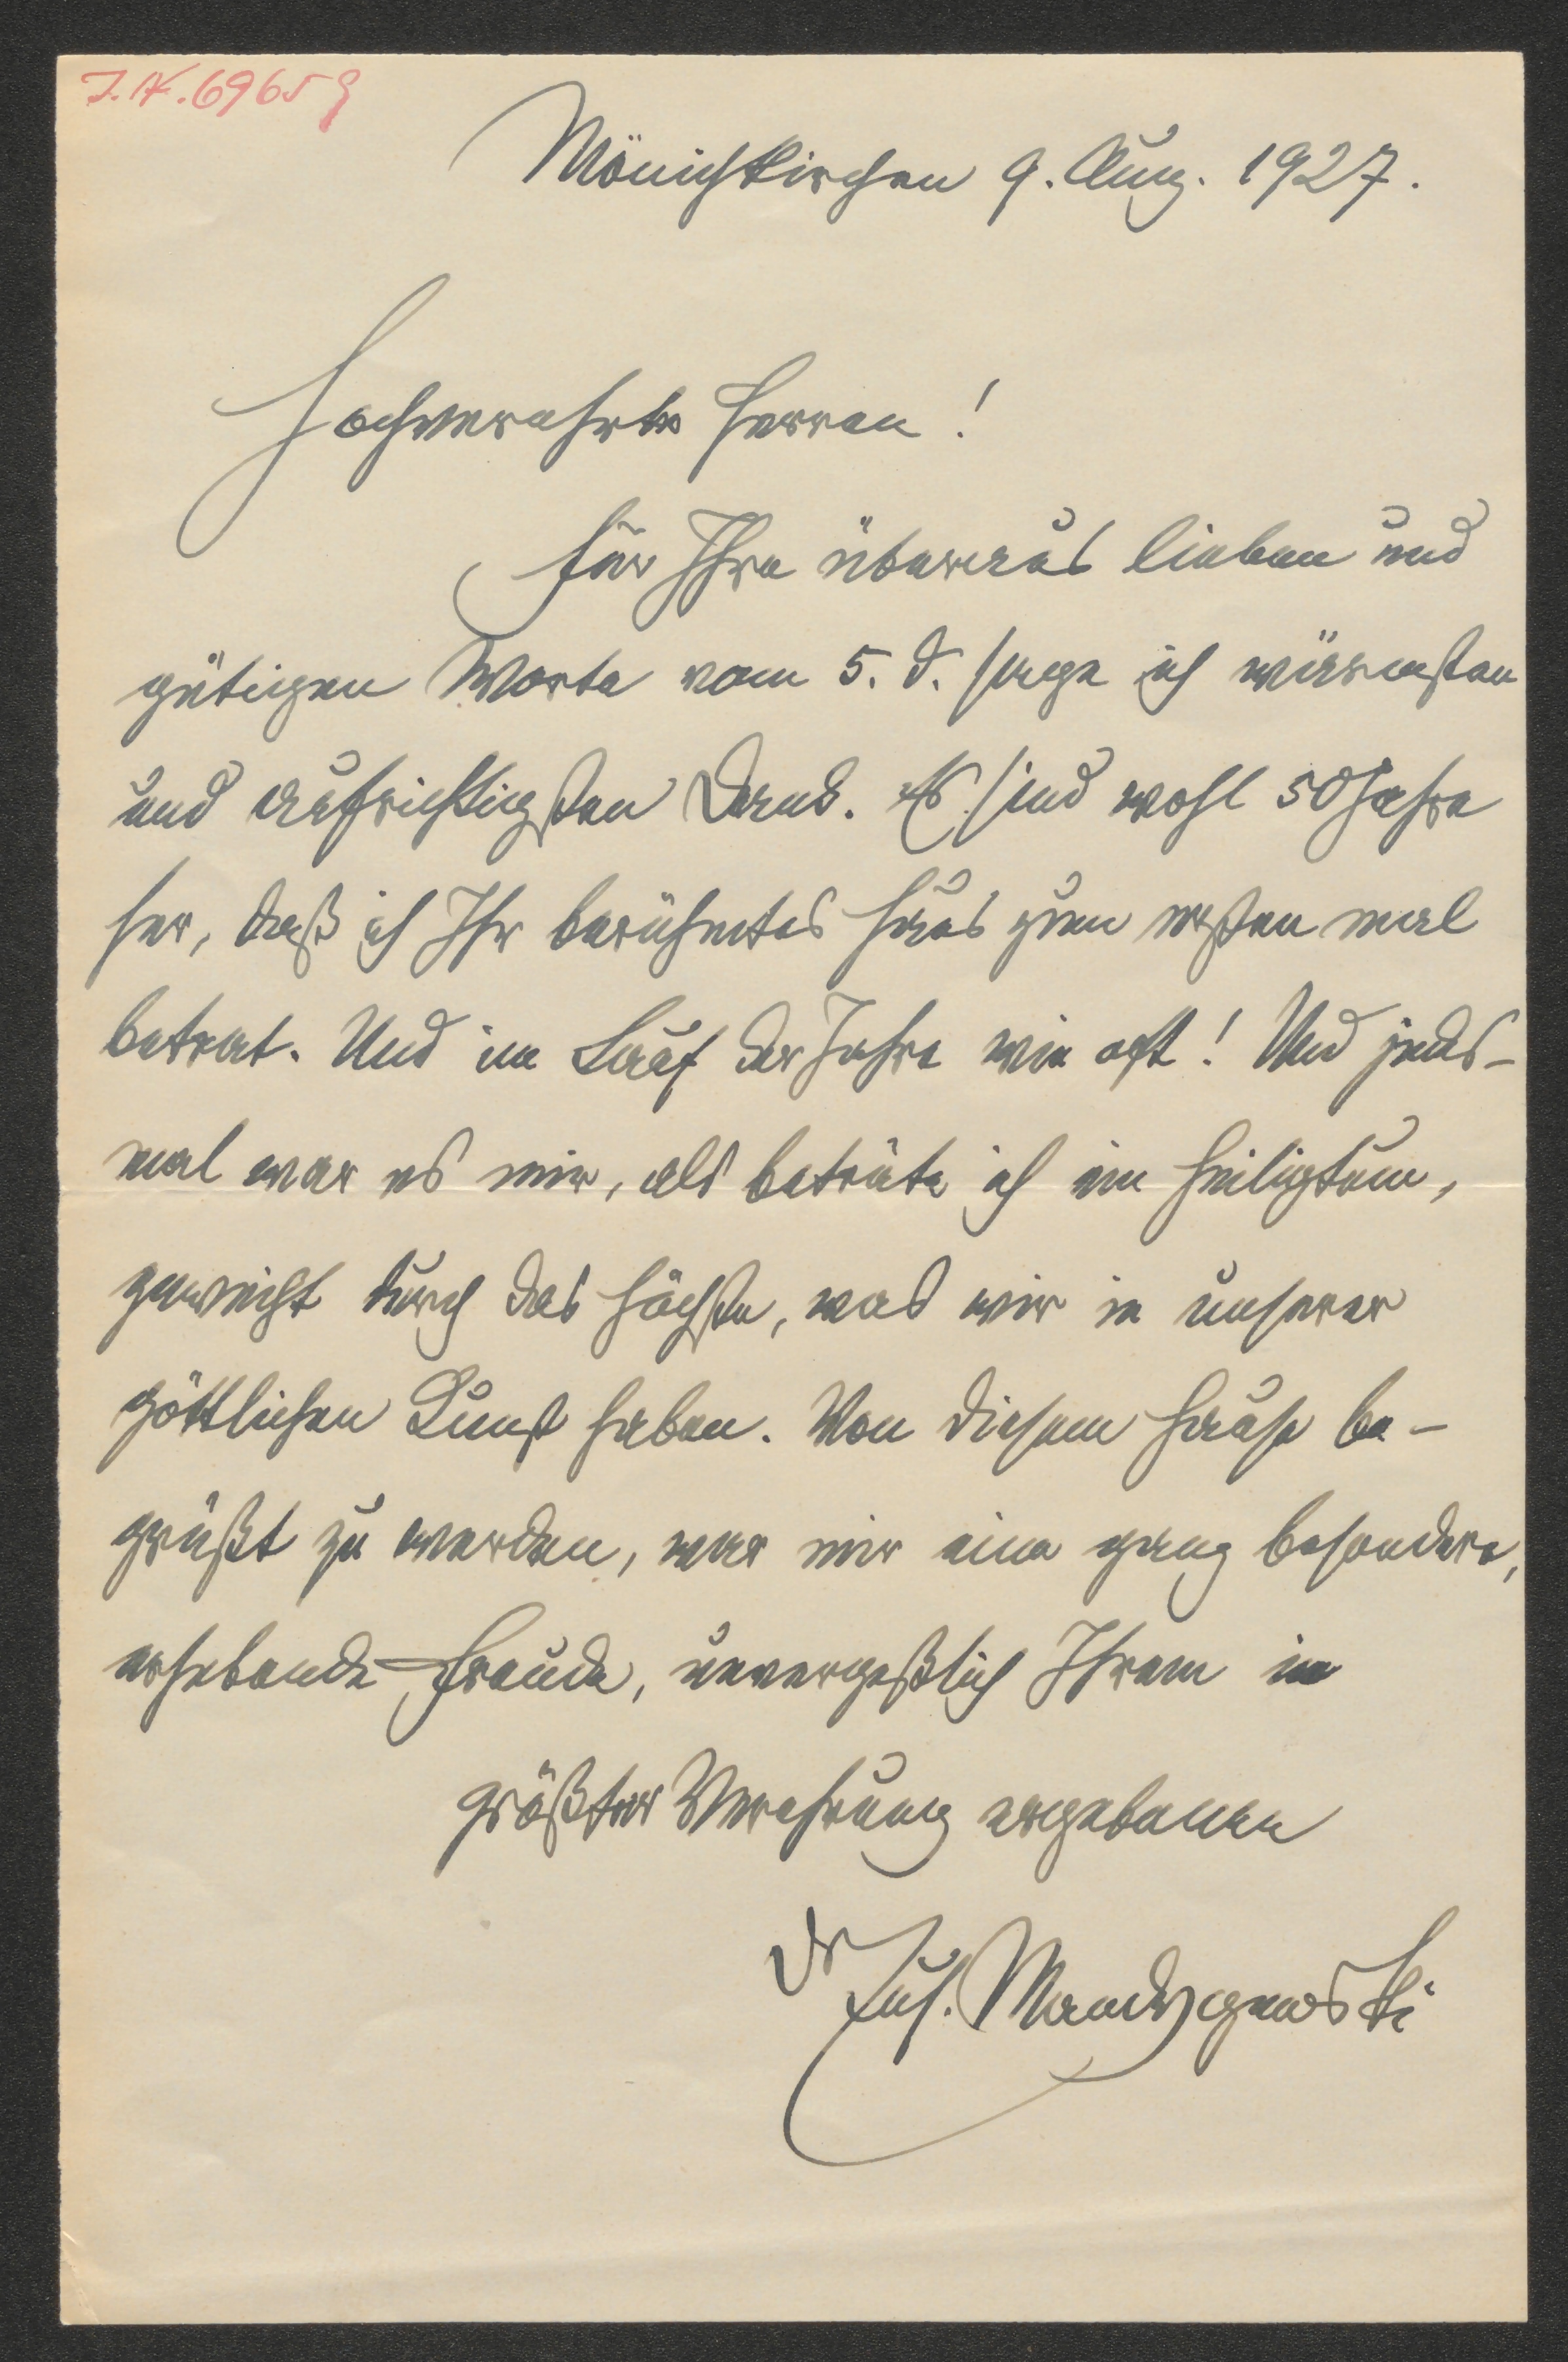 J.N.69659
Mönichkirchen 9. Aug. 1927.
Hochverehrte Herren!
Für Ihre überaus lieben und
gütigen Worte vom 5. d. sage ich wärmsten
und aufrichtigsten Dank. Es sind wohl 50 Jahre
her, daß ich Ihr berühmtes Haus zum ersten mal
betrat. Und im Lauf der Jahre wie oft! Und jedes-
mal war es mir, als beträte ich ein Heiligtum,
geweiht durch das Höchste, was wir in unserer
göttlichen Kunst haben. Von diesem Hause be-
grüßt zu werden, war mir eine ganz besondere,
erhebende Freude, unvergeßlich Ihrem in
größter Verehrung ergebenen
Dr Eus. Mandyczewski